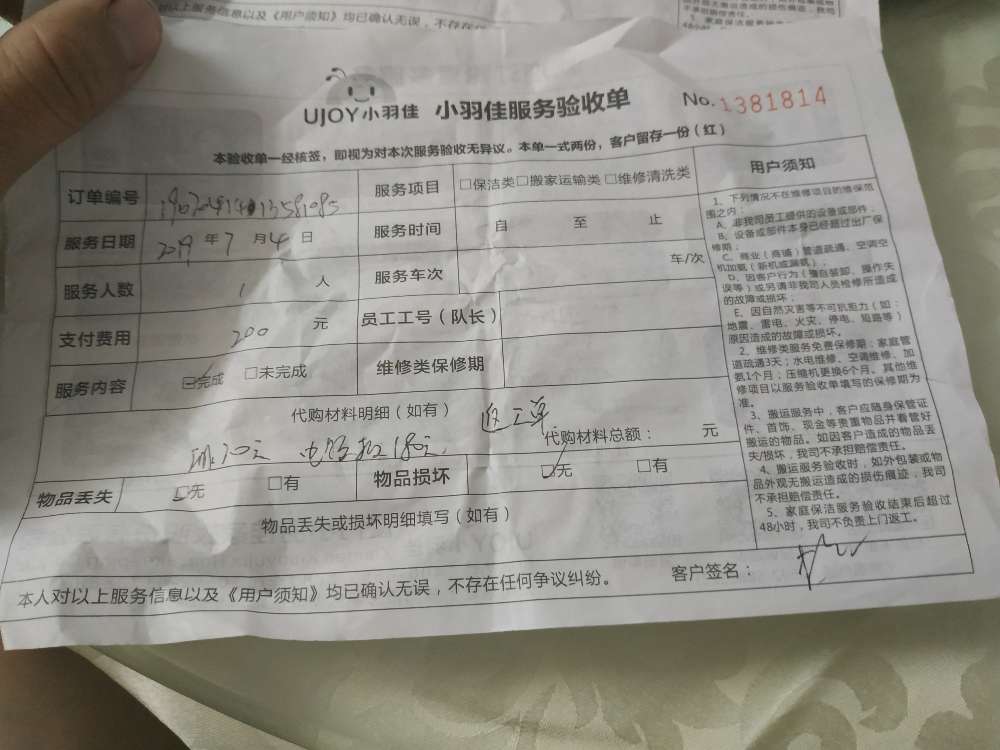 以上服务信息以及《用户须知》均已确认无误，不存在
UJOY小羽佳 小羽佳服务验收单 No.1381814
本验收单一经核签，即视为对本次服务验收无异议。本单一式两份，客户留存一份（红）
订单编号 服务项目 □保洁类□搬家运输类□维修清洗类
服务日期 2019年7月4日 服务时间 自 至 止
服务人数 1人 服务车次 车/次
支付费用 200元 员工工号（队长）
服务内容 □完成 □未完成 维修类保修期
代购材料明细（如有） 返工单
180元 代购材料总额： 元
物品丢失 □无 □有 物品损坏 □无 □有
物品丢失或损坏明细填写（如有）
本人对以上服务信息以及《用户须知》均已确认无误，不存在任何争议纠纷。 客户签名：
用户须知
1、下列情况不在维修项目的维保范
围之内：
A、非我司员工提供的设备或部件；
B、设备或部件本身已经超过出厂保
修期；
C、商业（商铺）管道疏通、空调空
机加氨（新机或漏氨）；
D、因客户行为（擅自装卸、操作失
误等）或另请非我司人员检修所造成
的故障或损坏；
E、因自然灾害等不可抗拒力（如：
地震、雷电、火灾、停电、短路等）
原因造成的故障或损坏。
2、维修类服务免费保修期：家庭管
道疏通3天；水电维修、空调维修、加
氨1个月；压缩机更换6个月。其他维
修项目以服务验收单填写的保修期为
准。
3、搬运服务中，客户应随身保管证
件、首饰、现金等贵重物品并看管好
搬运的物品。如因客户造成的物品丢
失/损坏，我司不承担赔偿责任。
4、搬运服务验收时，如外包装或物
品外观无搬运造成的损伤痕迹，我司
不承担赔偿责任。
5、家庭保洁服务验收结束后超过
48小时，我司不负责上门返工。